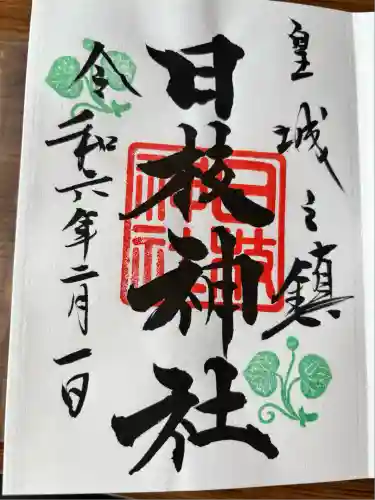 皇城之鎮
日枝神社
日枝神社
令和六年二月一日